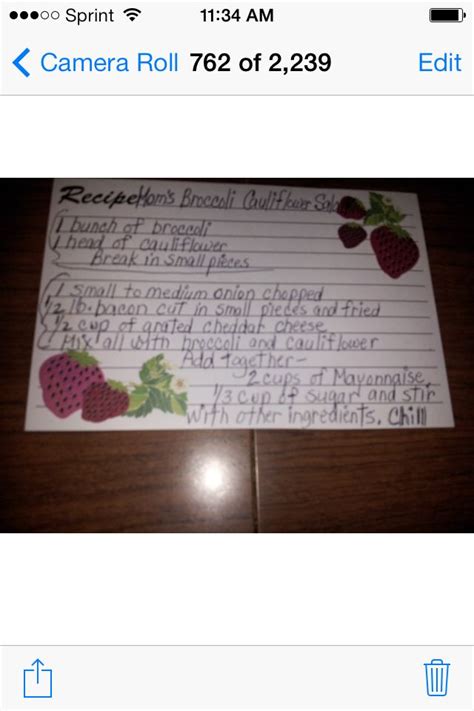 Sprint 11:34 AM
Camera Roll 762 of 2,239 Edit
Recipe Mom's Broccoli Cauliflower Salad
1 bunch of broccoli
1 head of cauliflower
Break in small pieces
1 small to medium onion chopped
1/2 lb. bacon cut in small pieces and fried
1/2 cup of grated cheddar cheese
Mix all with broccoli and cauliflower
Add together-
2 cups of Mayonnaise,
1/3 cup of sugar and stir
with other ingredients. Chill